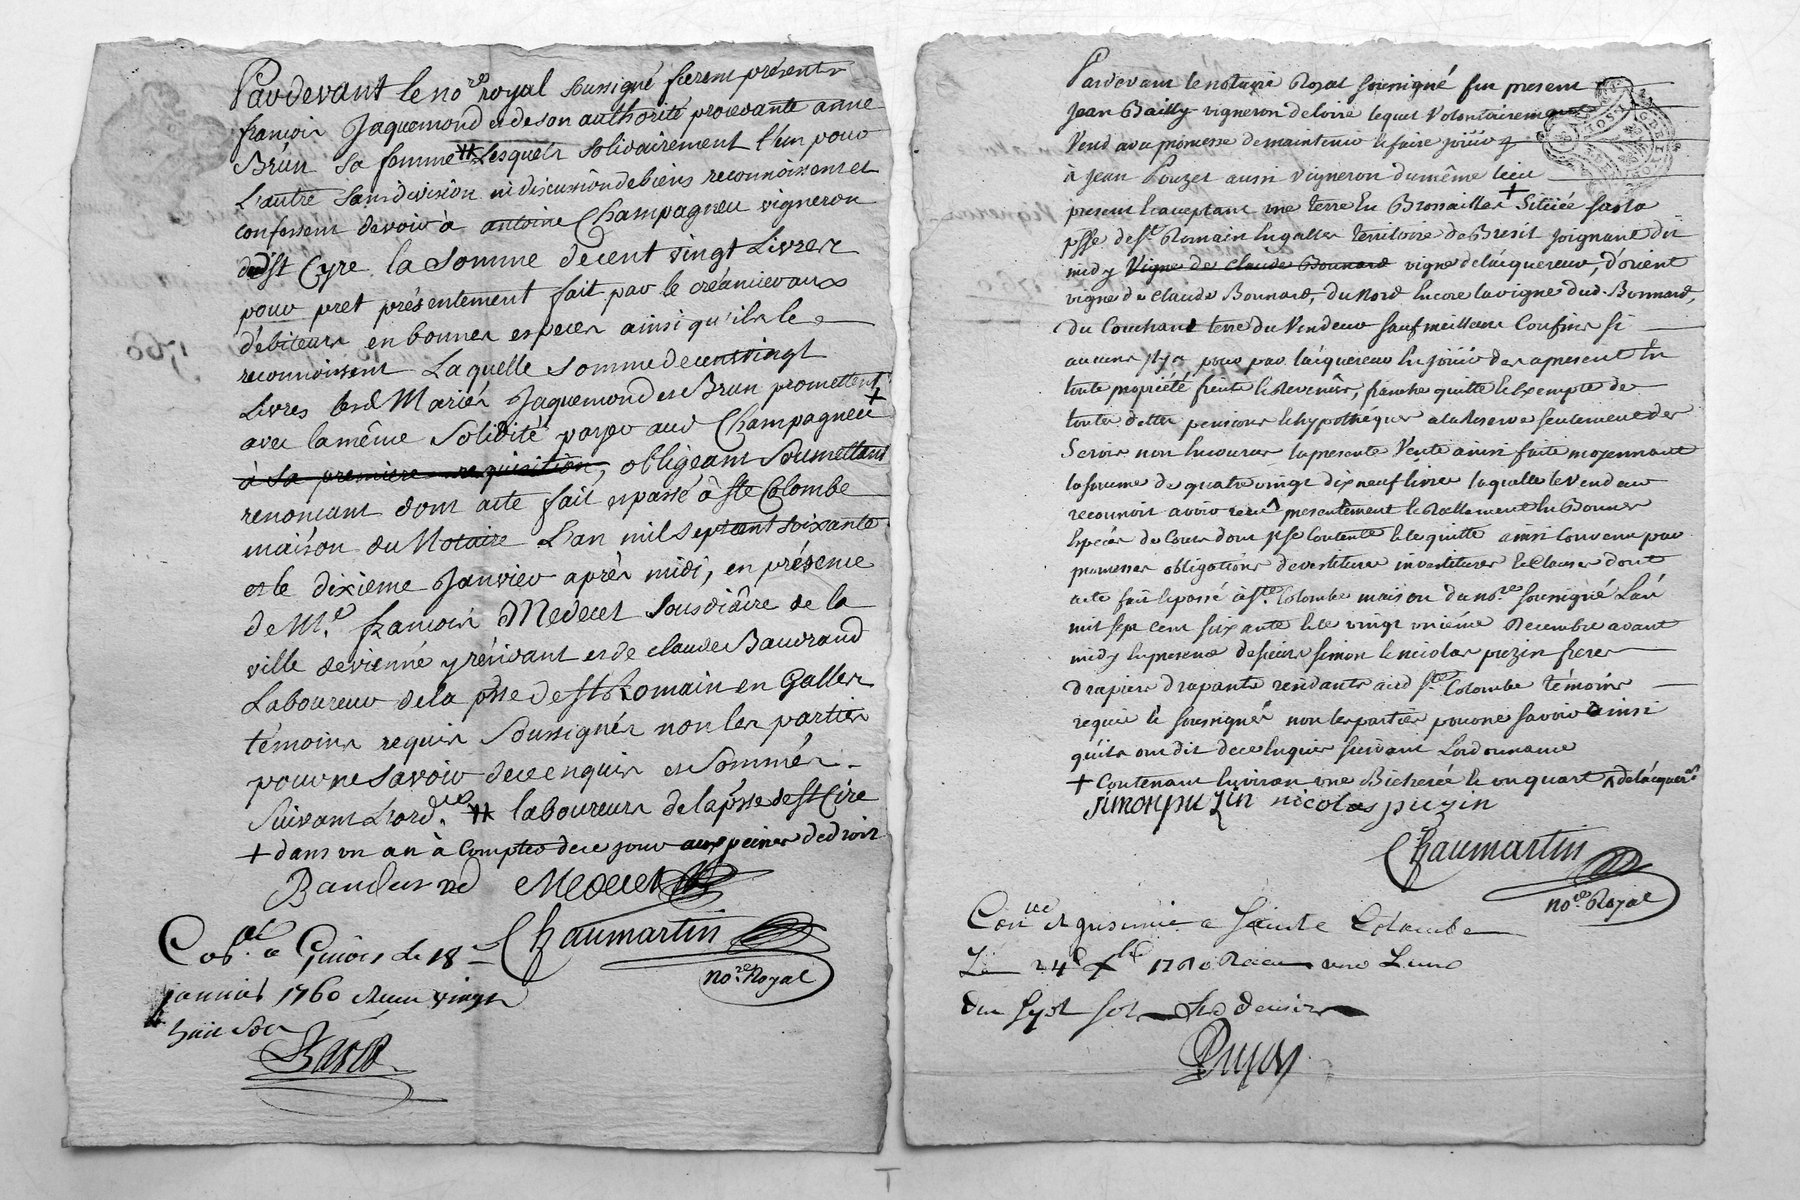 Pardevant le no.re royal soussigné furent présents
françois Jaquemond et de son authorité procevante anne
Brun sa femme # Lesquels solidairement l'un pour
L'autre sans division ni discussion de biens reconnoissent et
confessent devoir à antoine Champagneu vigneron
de St Cyre, la somme de cent vingt Livres
pour pret présentement fait par le créancier aux
débiteurs en bonnes especes ainsi qu'ils le
reconnoissent Laquelle somme de cent vingt
Livres lesd Mariés Jaquemond et Brun promettent
avec la même solidité payer aud Champagneu +
à sa premiere requisition, obligeant soumettant
renoncant dont acte fait et passé à Ste Colombe
maison du Notaire L'an mil sept cent soixante
et le dixieme Janvier après midi, en présence
de M.e françois Medecet sousdiacre de la
ville de vienne y résidant et de claude Baudrand
Laboureur de la psse de St Romain en Galles
témoins requis soussignés non les parties
pour ne savoir de ce enquis et sommés
suivant L'ord.ces # laboureurs de la psse de St Cire
+ dans un an à compter de ce jour aux peines de droit
Baudrand Medecet
Chaumartin
no.re Royal
a Givors le 18
janvier 1760 Reçu vingt
huit sols
1760
Pardevant le notaire Royal soussigné fut present
Jean Bailly vigneron de loire lequel volontairement
Vend avec promesse de maintenir et faire jouir
à Jean Pouzet aussi vigneron du même lieu
present et acceptant une terre en Brossailles + Située sur la
psse de St Romain en galles territoire de Bresit joignant du
midy Vigne de Claude Bonnard vigne de lacquereur, d'orient
vigne de Claude Bonnard, du Nord encore la vigne dud. Bonnard,
du Couchant terre du Vendeur sauf meilleurs Confins si
aucuns il y a pour par lacquereur en jouir des apresent en
toute propriété fruits et revenus, franche quitte et exempte de
toutes dettes pensions et hypothéques a la Reserve seulement des
Servis non encourus, la presente Vente ainsi faite moyennant
la somme de quatre vingt dix neuf livres laquelle le Vendeur
reconnoit avoir receu ^ presentement et Réellement en Bonnes
Espéces de Cours dont il se contente et le quitte ainsi Convenu par
promesses obligations devestitures investitures et Clauses dont
acte fait et passé à Ste. Colombe maison du no.re soussigné L'an
mil sept cent soixante et le vingt unième Décembre avant
midy en presence de sieurs simon et nicolas puzin freres
drapiers drapants residants aud Ste Colombe témoins
requis et soussignés non les parties pour ne savoir ainsi
qu'ils ont dit de ce enquis suivant L'ordonnance
+ Contenant Environ une Bicherée et un quart ^ de lacquer.r
simon puzin nicolas puzin
Chaumartin
no.re Royal
Con.lle et insinué a Sainte Colombe
Le 24e Xbre 1760 Reçu une Livre
dix sept sols six deniers